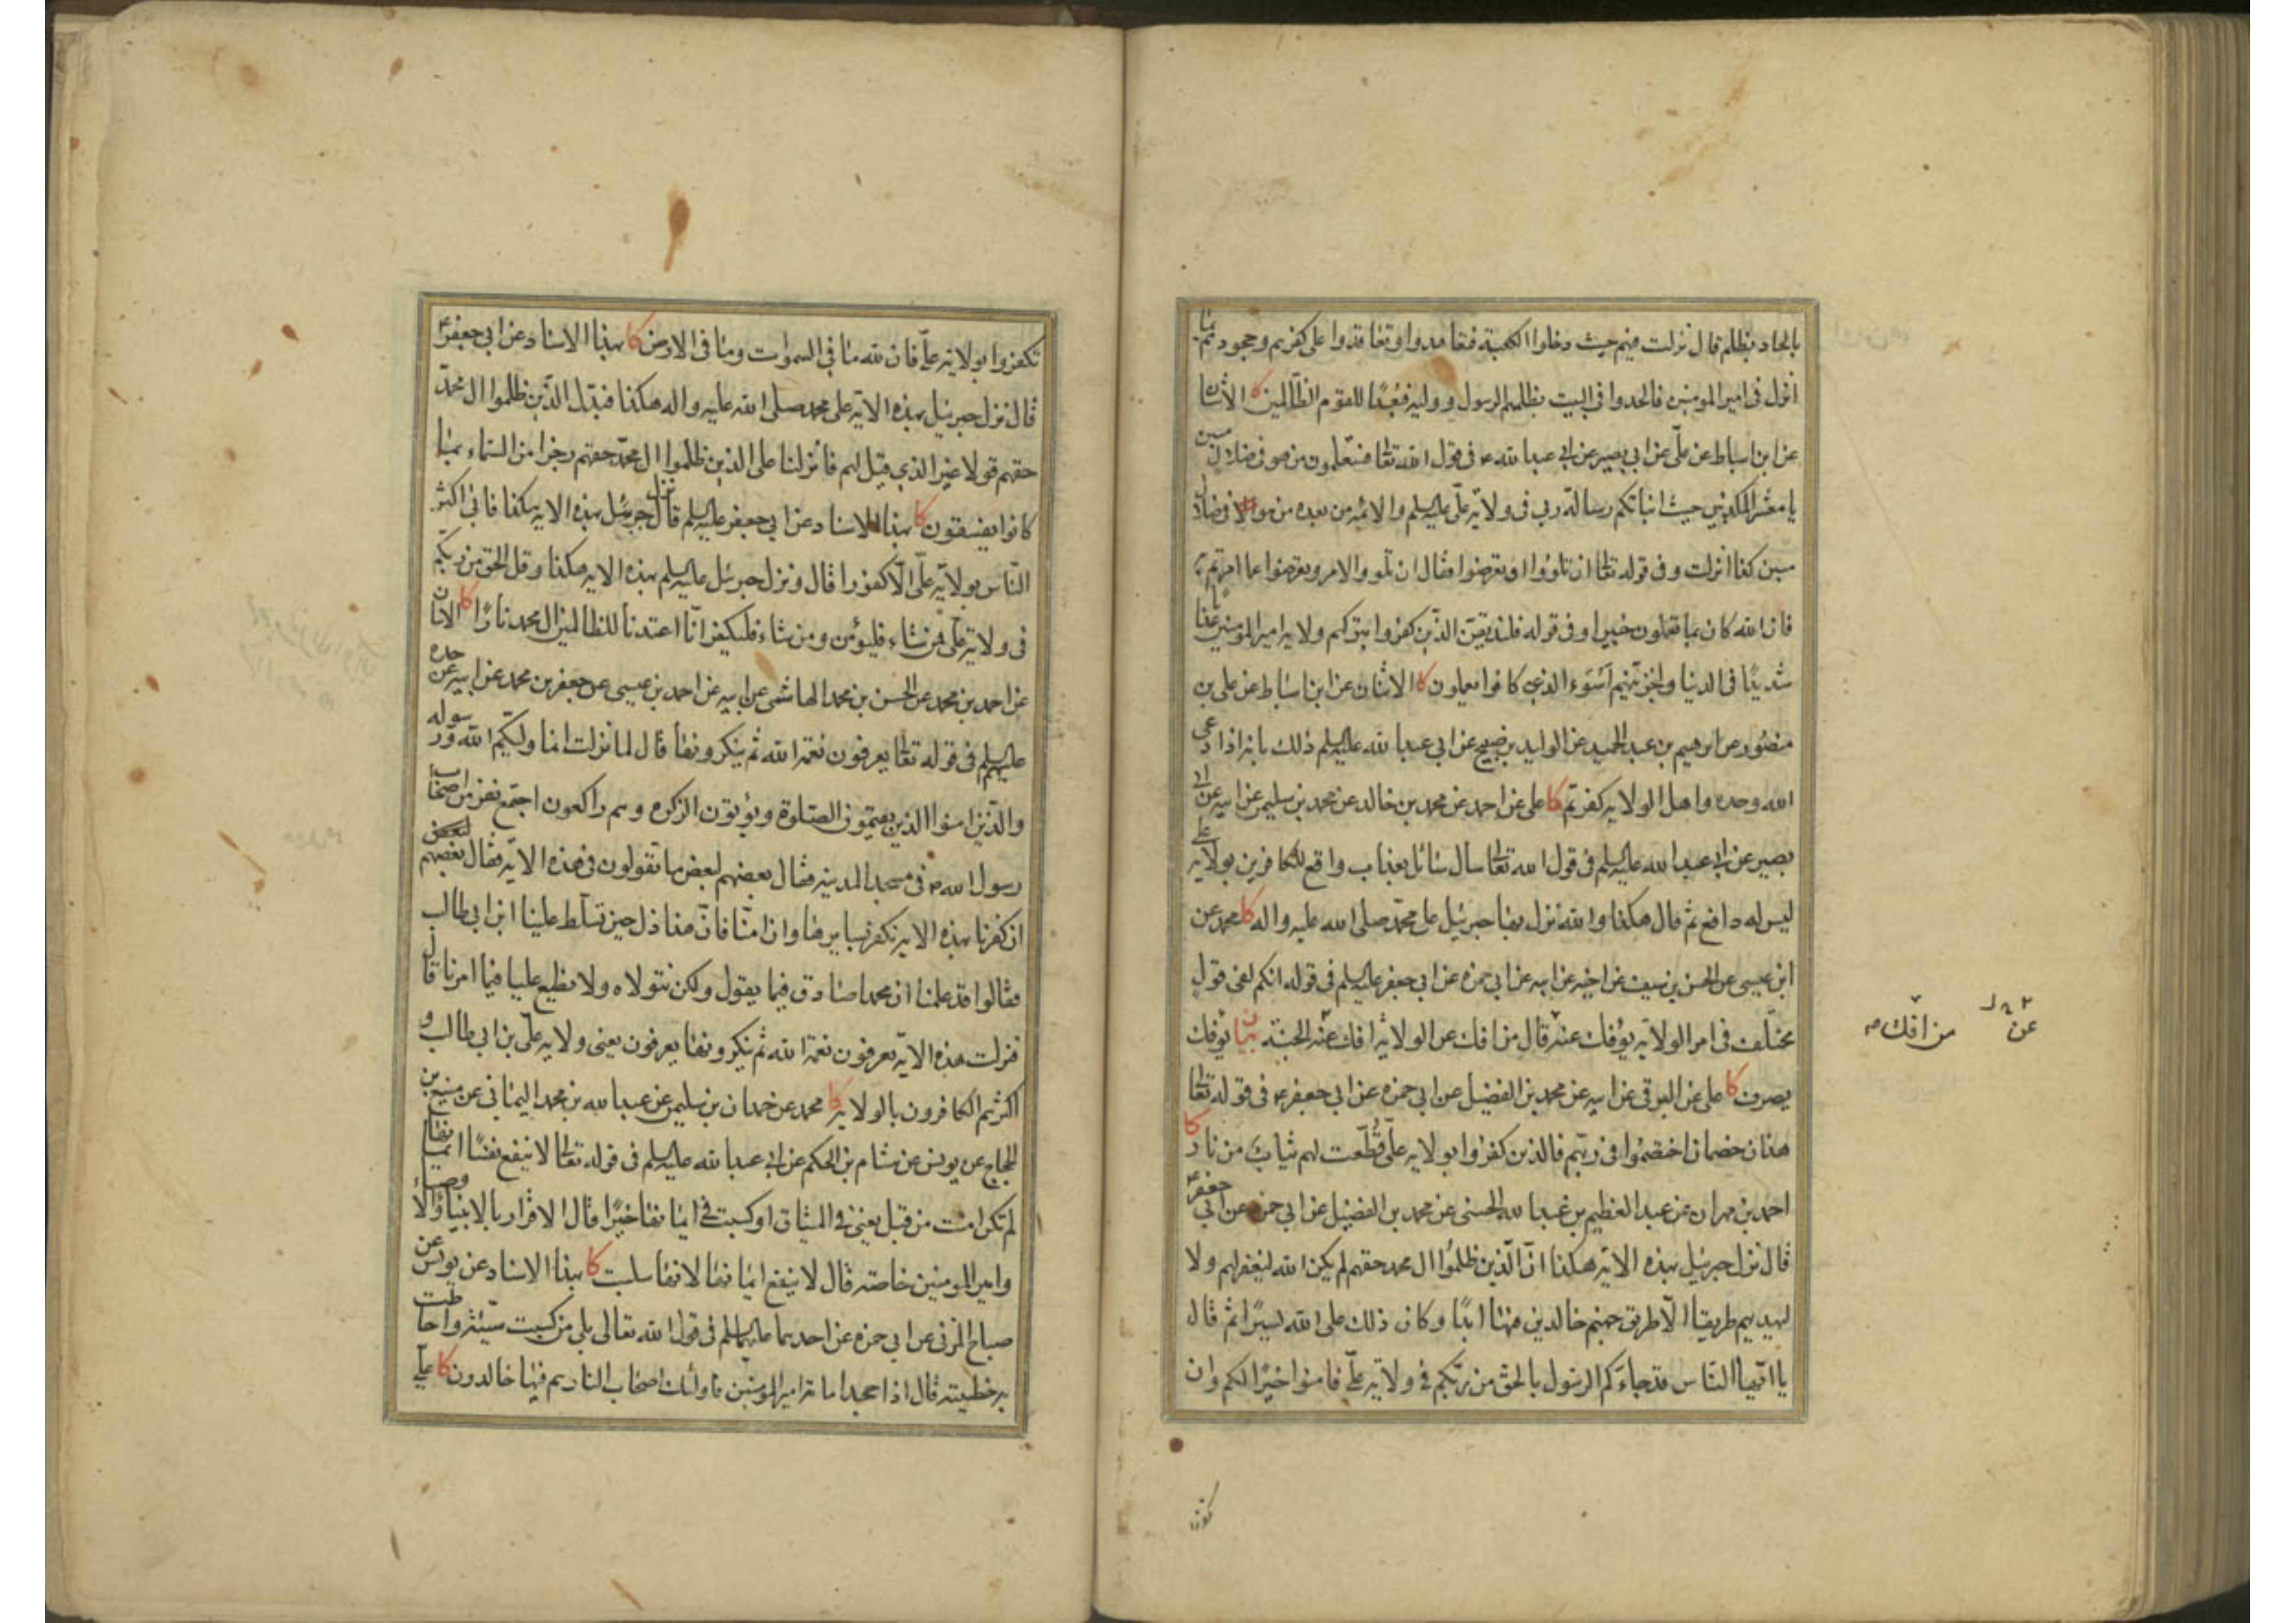 بالحاد بظلم قال نزلت فيهم حيث دخلوا الكعبة فتعاهدوا وتعاقدوا على كفرهم وجحودهم بما
انزل في امير المومنين فالحدوا في البيت بظلمهم الرسول ووليه فبُعدًا للقوم الظالمين كا الاثنان
عن ابن اسباط عن علي عن ابي بصير عن ابي عبدا لله ع في قول الله تعا فستعلمون من هو في ضلال مبين
يا معشر المكذبين حيث انباتكم رسالة ربي في ولاية علي عليه السلم والائمه من بعده من هو في ضلال
مبين كذا انزلت وفي قوله تعا ان تلوُوا او تعرضوا فقال ان تلووا الامر وتعرضوا عما امرتم به
فان الله كان بما تعملون خبيرا وفي قوله فلنذيقن الذين كفروا بتركهم ولاية امير المومنين عذابا
شديدًا في الدنيا ولنجزينهم اَسْوَء الذي كانوا يعملون كا الاثنان عن ابن اسباط عن علي بن
منصور عن ابرهيم بن عبد الحميد عن الوليد بن صبيح عن ابي عبدا لله عليه السلم ذلك بانه اذا دعي
الله وحده واهل الولاية كفرتم كا علي عن احمد عن محمد بن خالد عن محمد بن سليم عن ابيه عن ابي
بصير عن ابي عبدا لله عليه السلم في قول الله تعا سال سائل بعذاب واقع للكافرين بولاية علي
ليس له دافع ثم قال هكذا والله نزل بها جبرئيل على محمد صلى الله عليه واله كا محمد عن
ابن عيسى عن الحسن بن سيف عن اخيه عن ابيه عن ابي حمزه عن ابي جعفر عليه السلم في قوله انكم لفي قول
مختلف في امر الولاية يؤفك عنه قال من افك عن الولاية افك عن الجنة بيان يؤفك
عن من افك
يصرف كا علي عن البرقي عن ابيه عن محمد بن الفضيل عن ابي حمزه عن ابي جعفر ع في قوله تعا
هذان خصمان اختصموا في ربهم فالذين كفروا بولاية علي قُطّعت لهم ثياب من نار كا
احمد بن مهران عن عبد العظيم بن عبدا لله الحسني عن محمد بن الفضيل عن ابي حمزه عن ابي جعفر ع
قال نزل جبرئيل بهذه الاية هكذا انّ الّذين ظلموا ال محمد حقهم لم يكن الله ليغفر لهم ولا
ليهديهم طريقا الّا طريق جهنم خالدين فيها ابدًا وكان ذلك على الله يسيرًا ثم قال
يا ايّها النّاس قد جاءكم الرسول بالحق من ربّكم في ولاية عليّ فامنوا خيرًا لكم وان
تكفروا
تكفروا بولاية عليّ فان لله ما في السموات وما في الارض كا بهذا الاسناد عن ابي جعفر ع
قال نزل جبرئيل بهذه الاية على محمد صلى الله عليه واله هكذا فبدّل الذين ظلموا ال محمّد
حقهم قولا غير الذي قيل لهم فانزلنا على الذين ظلموا ال محمّد حقهم رجزا من السّماء بما
كانوا يفسقون كا بهذا الاسناد عن ابي جعفر عليه السلم قال نزل جبرئيل بهذه الاية هكذا فابى اكثر
النّاس بولاية عليّ الّا كفورا قال ونزل جبرئيل عليه السلم بهذه الاية هكذا وقل الحق من ربّكم
في ولاية علي فمن شاء فليؤمن ومن شاء فليكفر انّا اعتدنا للظالمين ال محمد نارًا كا الاثنان
عن احمد بن محمد عن الحسن بن محمد الهاشمي عن ابيه عن احمد بن عيسى عن جعفر بن محمد عن ابيه عن جده
عليهم السلم في قوله تعا يعرفون نعمة الله ثم ينكرونها قال لما نزلت انما وليّكم الله ورسوله
والّذين امنوا الذين يقيمون الصلوة ويؤتون الزكوه وهم راكعون اجتمع نفر من اصحاب
رسول الله ص في مسجد المدينه فقال بعضهم لبعض ما تقولون في هذه الاية فقال بعضهم لبعض
ان كفرنا بهذه الاية نكفر بسايرها وان امنّا فانّ هذا ذل حين تسلّط علينا ابن ابي طالب
فقالوا قد علمنا ان محمدا صادق فيما يقول ولكن نتولاه ولا نطيع عليا فيما امرنا قال
فنزلت هذه الاية يعرفون نعمة الله ثم ينكرونها يعرفون يعني ولاية عليّ بن ابي طالب و
اكثرهم الكافرون بالولاية كا محمد عن حمدان بن سليمن عن عبدا لله بن محمد اليماني عن منيع بن
الحجاج عن يونس عن هشام بن الحكم عن ابي عبدا لله عليه السلم في قوله تعا لا ينفع نفسًا ايمانها
لم تكن امنت من قبل يعني في الميثاق او كسبت في ايمانها خيرًا قال الاقرار بالانبياء والاوصياء
وامير المومنين خاصة قال لا ينفع ايمانها لانها سلبت كا بهذا الاسناد عن يونس عن
صباح المزني عن ابي حمزه عن احدهما عليهما السلم في قول الله تعالى بلى من كسب سيّئة واحاطت
به خطيئته قال اذا جحد امامة امير المومنين فاولئك اصحاب النار هم فيها خالدون كا عليّ